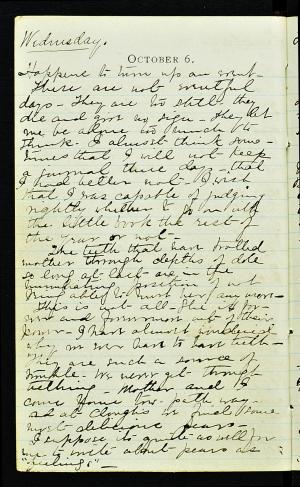 Wednesday.
OCTOBER 6.
Happene to turn up an event—
These are not eventful
days— They are so still they
die and give no sign— They let
me be alone too much to
think. I almost think some-
times that I will not keep
a journal these days— that
I had better not— I wish
that I was capable of judging
rightly whether to go on with
the little book the rest of
the year or not—
The teeth that have trolled
mother through depths of dole
so long at last are in the
humiliating position of not
being able to hurt her any more—
This is not all— She is far
over and forevermore out of their
power— I have almost wondered
why we ever have to have teeth—
They are such a source of
trouble. We never get through
teething. Mother and I
come home path way—
at Clough's we find some
most delicious pears—
I suppose its quite as well for
me to write about pears as
"feelings"—